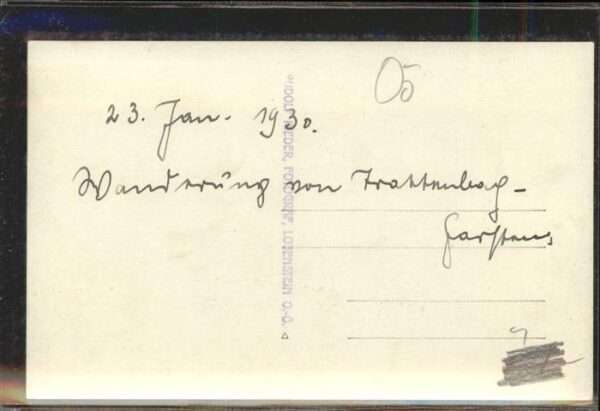 OÖ
23. Jan. 1930.
Wanderung von Trattenbach -
Garsten
RUDOLF RIEDER, FOTOGRAF, LOSENSTEIN O.-Ö.